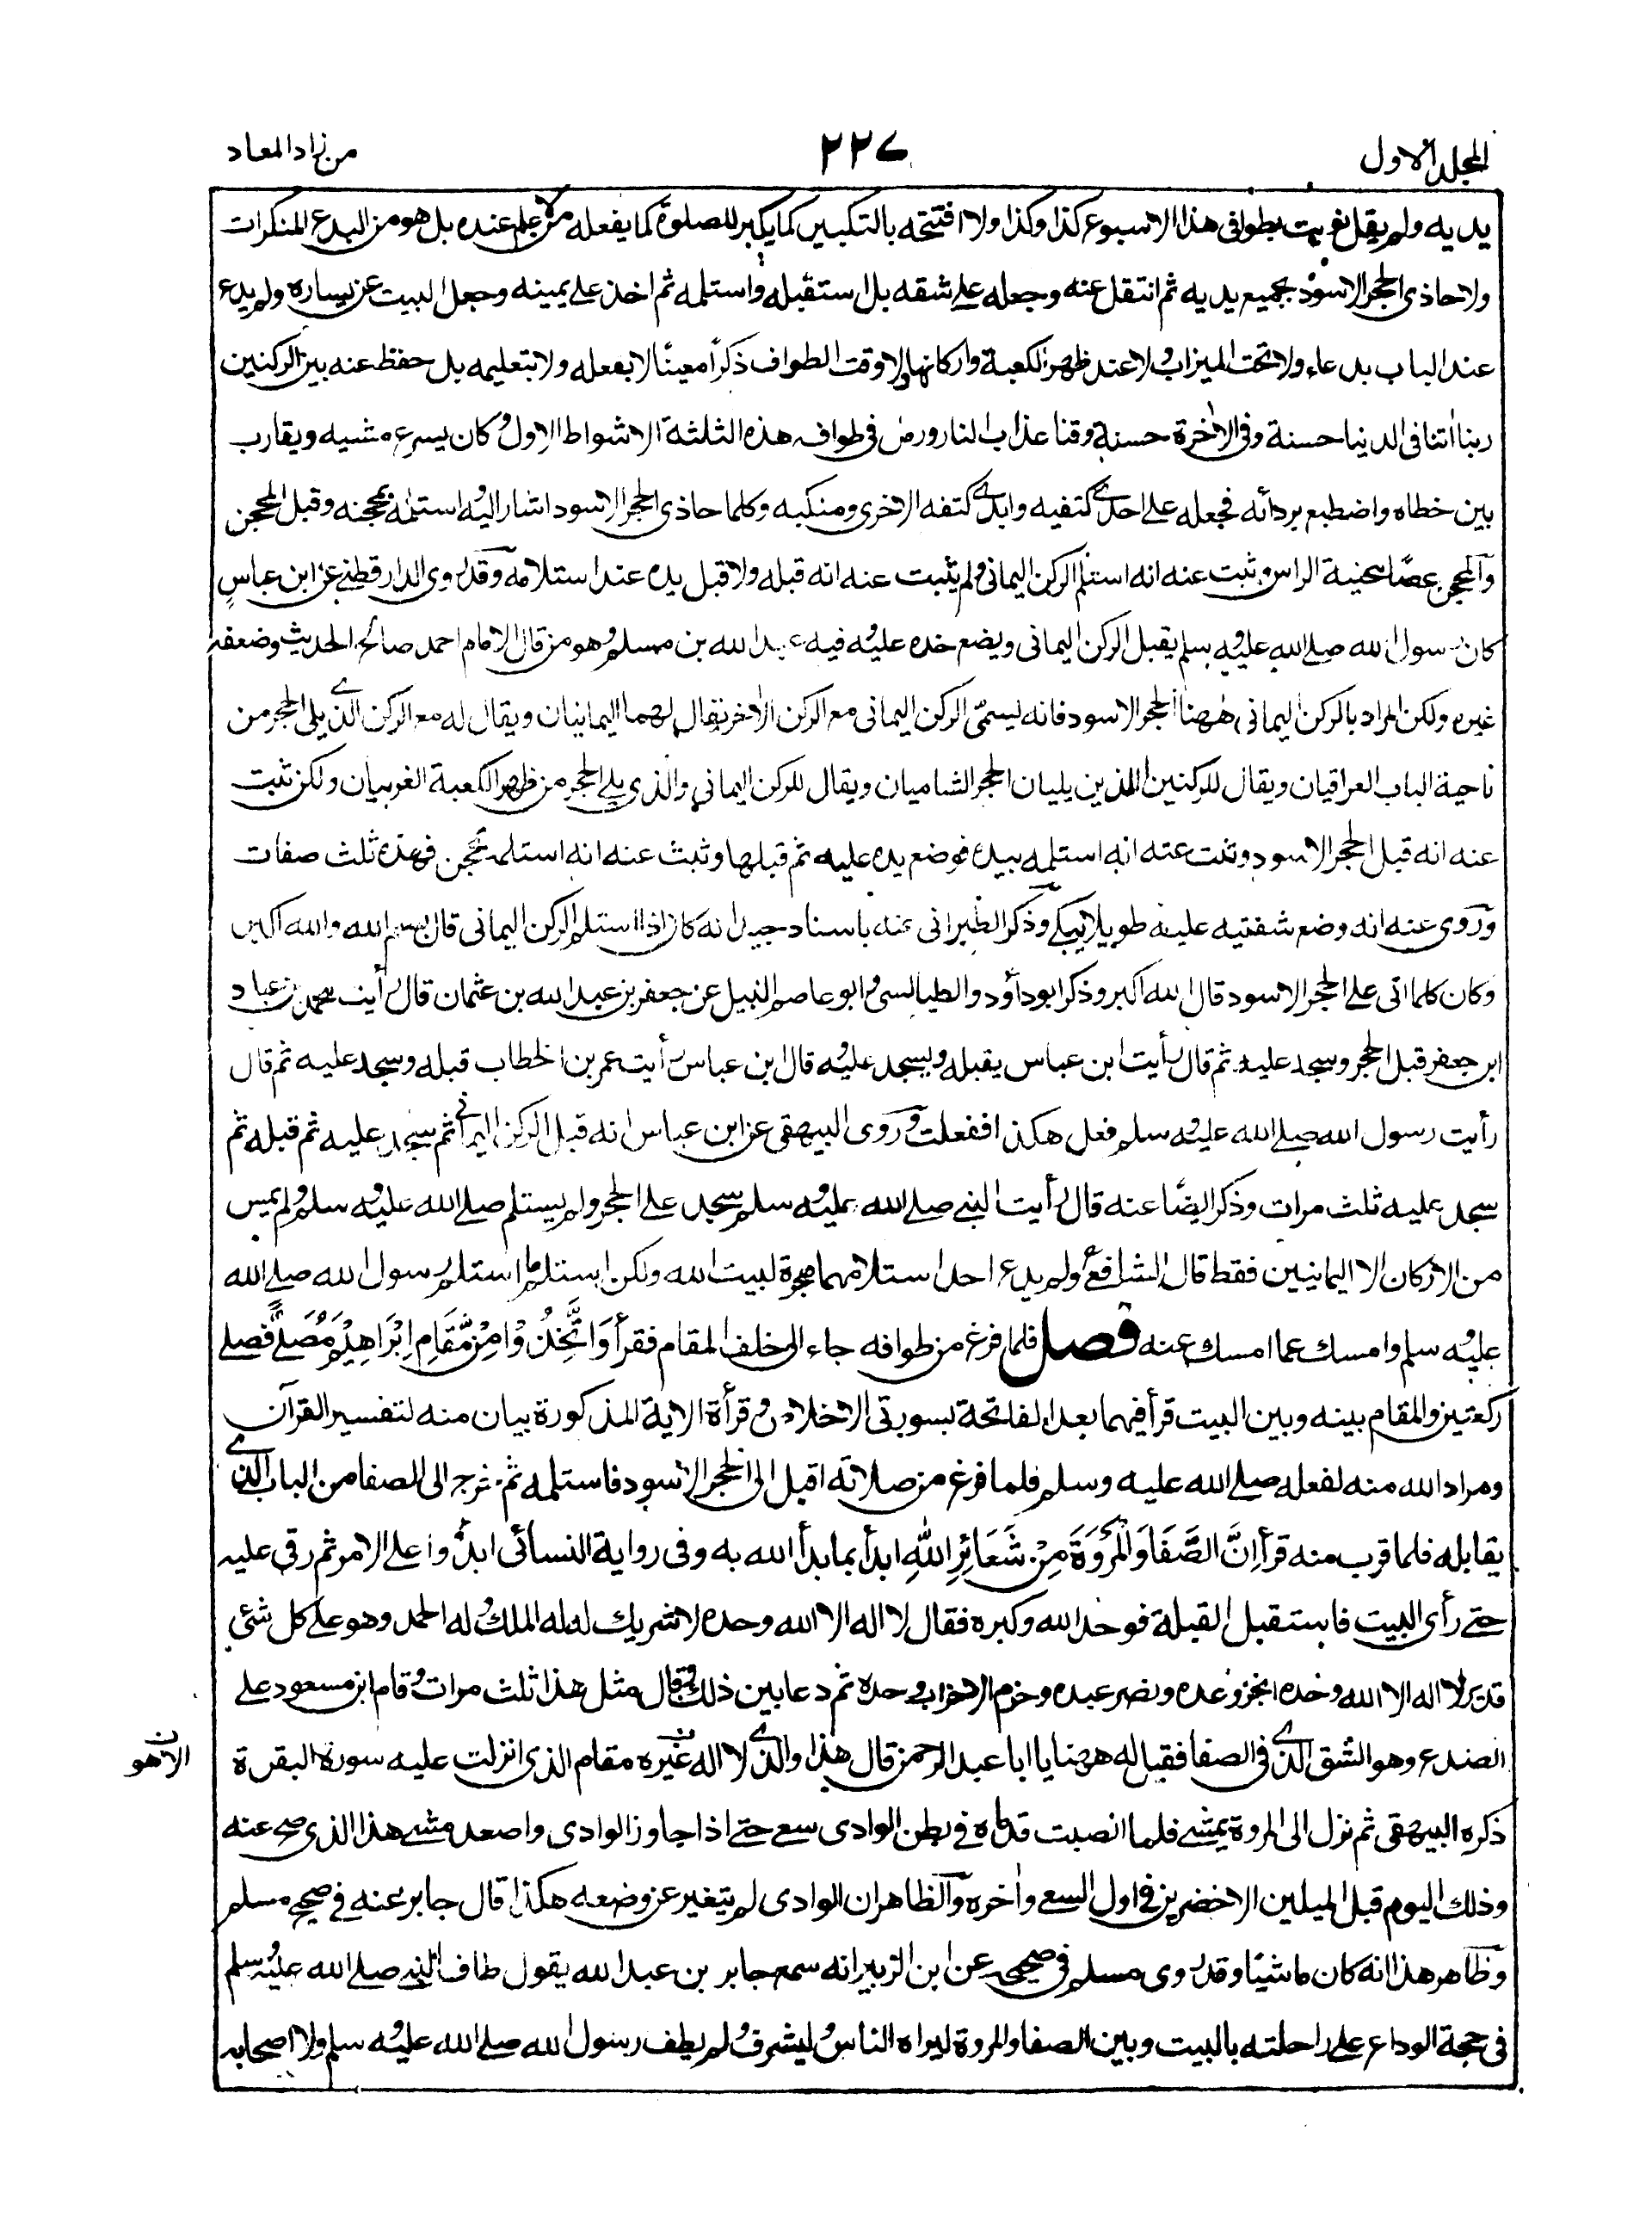 المجلد الاول
٢٢٧
من زاد المعاد
يديه ولم يقل نويت بطوافى هذا الاسبوع كذا وكذا ولا افتتحه بالتكبير كما يكبر للصلوة كما يفعله من لا علم عنده بل هو من البدع المنكرات
ولا حاذى الحجر الاسود بجميع يديه ثم انتقل عنه وجعله على شقه بل استقبله واستلمه ثم اخذ على يمينه وجعل البيت عن يساره ولم يدع
عند الباب بدعاء ولا تحت الميزاب ولا عند ظهر الكعبة واركانها ولا وقت الطواف ذكراً معينًا لا بفعله ولا بتعليمه بل حفظ عنه بين الركنين
ربنا اٰتنا فى الدنيا حسنة وفى الاٰخرة حسنة وقنا عذاب النار ورمل فى طوافه هذه الثلثة الاشواط الاول وكان يسرع مشيه ويقارب
بين خطاه واضطبع بردائه فجعله على احدى كتفيه وابدى كتفه الاخرى ومنكبه وكلما حاذى الحجر الاسود اشار اليه واستلمه بمحجنه وقبل المحجن
والمحجن عصًا محنية الراس وثبت عنه انه استلم الركن اليمانى ولم يثبت عنه انه قبله ولا قبل يده عند استلامه وقد روى الدارقطنى عن ابن عباس
كان رسول الله صلى الله عليه وسلم يقبل الركن اليمانى ويضع خده عليه وفيه عبد الله بن مسلم وهو من قال الامام احمد صالح الحديث وضعفه
غيره ولكن المراد بالركن اليمانى ههنا الحجر الاسود فانه يسمّى الركن اليمانى مع الركن الاٰخر يقال لهما اليمانيان ويقال له مع الركن الذى يلى الحجر من
ناحية الباب العراقيان ويقال للركنين اللذين يليان الحجر الشاميان ويقال للركن اليمانى والذى يلى الحجر من ظهر الكعبة الغربيان ولكن ثبت
عنه انه قبل الحجر الاسود وثبت عنه انه استلمه بيده فوضع يده عليه ثم قبلها وثبت عنه انه استلمه بمحجن فهذه ثلث صفات
وروى عنه انه وضع شفتيه عليه طويلا يبكى وذكر الطبرانى عنه باسناد جيد انه كان اذا استلم الركن اليمانى قال بسم الله والله اكبر
وكان كلما اتى على الحجر الاسود قال الله اكبر وذكر ابو داؤد والطيالسى وابو عاصم النبيل عن جعفر بن عبد الله بن عثمان قال رأيت محمد بن عباد
ابن جعفر قبل الحجر وسجد عليه ثم قال رأيت ابن عباس يقبله ويسجد عليه وقال ابن عباس رأيت عمر بن الخطاب قبله وسجد عليه ثم قال
رأيت رسول الله صلى الله عليه وسلم فعل هكذا ففعلت وروى البيهقى عن ابن عباس انه قبل الركن اليمانى ثم سجد عليه ثم قبله ثم
سجد عليه ثلث مرات وذكر ايضًا عنه قال رأيت النبى صلى الله عليه وسلم سجد على الحجر ولم يستلم صلى الله عليه وسلم ولم يمس
من الاركان الا اليمانيين فقط قال الشافعى ولم يدع احد استلامهما هجرة لبيت الله ولكن استلم ما استلم رسول الله صلى الله
عليه وسلم وامسك عما امسك عنه فصل فلما فرغ من طوافه جاء الى خلف المقام فقرأ وَاتَّخِذُوْا مِنْ مَّقَامِ اِبْرَاهِيْمَ مُصَلًّى فصلى
ركعتين والمقام بينه وبين البيت قرأ فيهما بعد الفاتحة بسورتى الاخلاص وقرأة الاية المذكورة بيان منه لتفسير القرآن
ومراد الله منه لفعله صلى الله عليه وسلم فلما فرغ من صلاته اقبل الى الحجر الاسود فاستلمه ثم خرج الى الصفا من الباب الذى
يقابله فلما قرب منه قرأ اِنَّ الصَّفَا وَالْمَرْوَةَ مِنْ شَعَائِرِ اللّٰهِ ابدأ بما بدأ الله به وفى رواية النسائى ابدؤا على الامر ثم رقى عليه
حتى رأى البيت فاستقبل القبلة فوحد الله وكبره فقال لا اله الا الله وحده لا شريك له له الملك وله الحمد وهو على كل شئ
قدير لا اله الا الله وحده انجز وعده ونصر عبده وهزم الاحزاب وحده ثم دعا بين ذلك وقال مثل هذا ثلث مرات وقام ابن مسعود على
الصدع وهو الشق الذى فى الصفا فقيل له ههنا يا ابا عبد الرحمن قال هذا والذى لا اله غيره مقام الذى انزلت عليه سورة البقرة
الا هو ن
ذكره البيهقى ثم نزل الى المروة يمشى فلما انصبت قدماه فى بطن الوادى سعى حتى اذا جاوز الوادى واصعد مشى هذا الذى صح عنه
وذلك اليوم قبل الميلين الاخضرين فى اول السعى واٰخره والظاهر ان الوادى لم يتغير عن وضعه هكذا قال جابر عنه فى صحيح مسلم
وظاهر هذا انه كان ماشيًا وقد روى مسلم فى صحيحه عن ابن الزبير انه سمع جابر بن عبد الله يقول طاف النبى صلى الله عليه وسلم
فى حجة الوداع على راحلته بالبيت وبين الصفا والمروة ليراه الناس وليشرف ولم يطف رسول الله صلى الله عليه وسلم ولا اصحابه